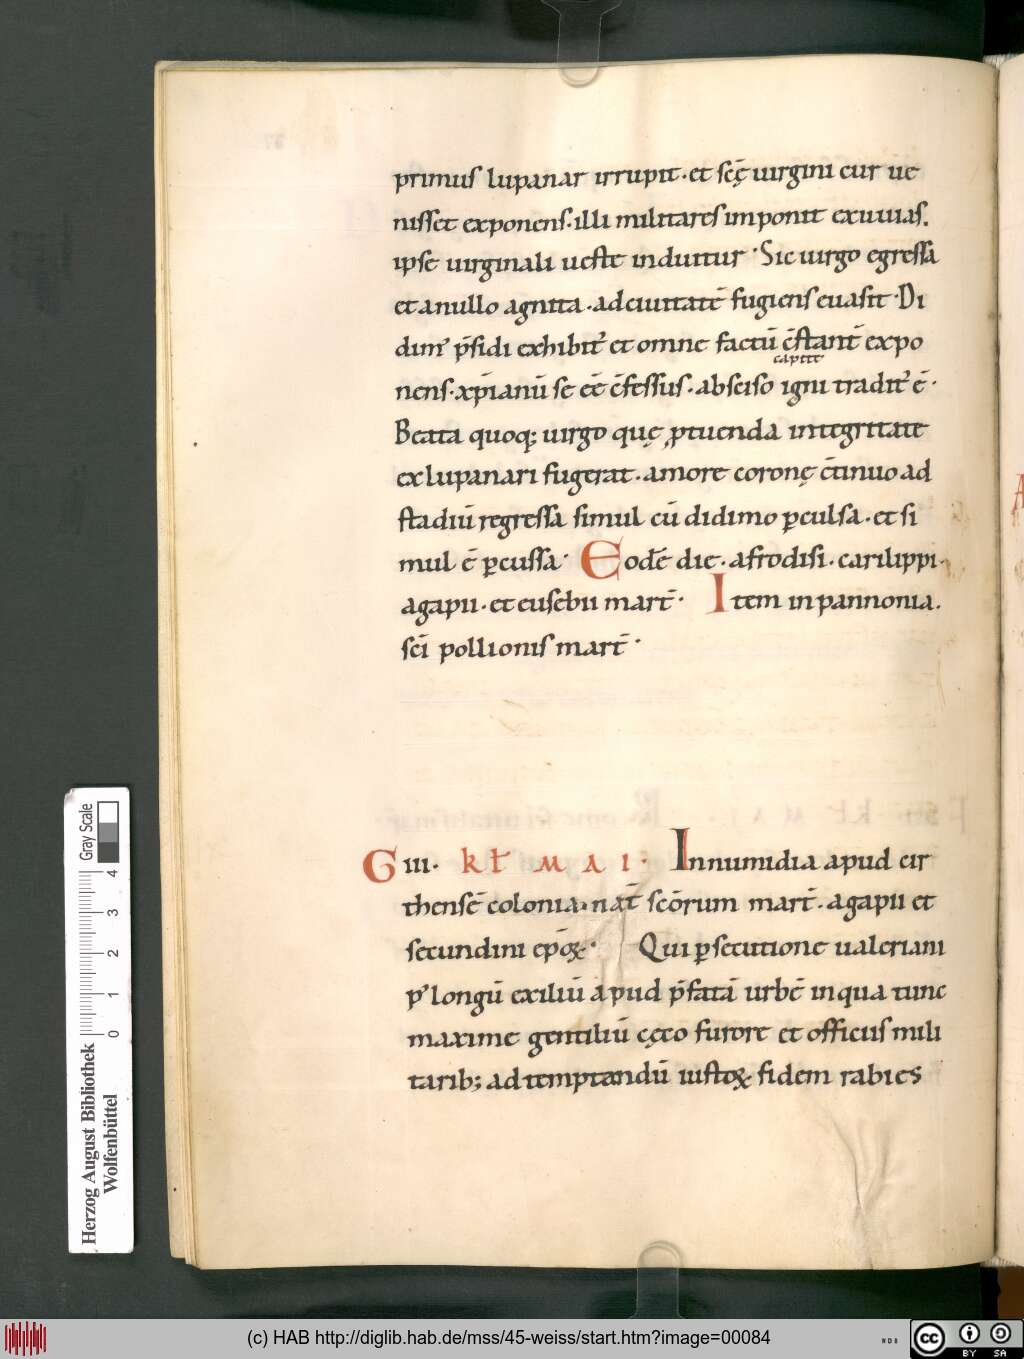 primus lupanar irrupit · et scę̄ uirgini cur ue
nisset exponens · illi militares imponit exuuias.
ipse uirginali ueste induitur · Sic uirgo egressa
et a nullo agnita · ad ciuitatē fugiens euasit · Di
dim᾽ p̄sidi exhibit᾽ et omne factū c̄stant̄ expo
capite
nens · xp̄ianū se eē c̄fessus · absciso igni tradit᾽ ē ·
Beata quoq; uirgo quę ꝓtuenda integritate
ex lupanari fugerat · amore coronę c̄tinuo ad
stadiū regressa simul cū didimo ꝑculsa · et si
mul ē ꝑcussa · Eodē die · afrodisi · carilippi ·
agapii · et eusebii mart̄ · Item in pannonia.
sc̄i pollionis mart̄ ·
G iiii · kł MAI · In numidia apud cir
thensē colonia · nat̄ scōrum mart̄ · agapii et
secundini ep̄oꝝ · Qui ꝑsecutione ualeriani
p᾽ longū exiliū apud p̄fatā urbē in qua tunc
maxime gentiliū cęco furore et officiis mili
tarib; ad temptandū iustoꝝ fidem rabies
Gray Scale
0 1 2 3 4
Herzog August Bibliothek
Wolfenbüttel
(c) HAB http://diglib.hab.de/mss/45-weiss/start.htm?image=00084
WDB
cc BY SA